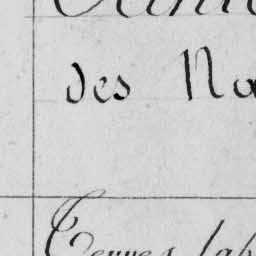 des Na
Terres lab